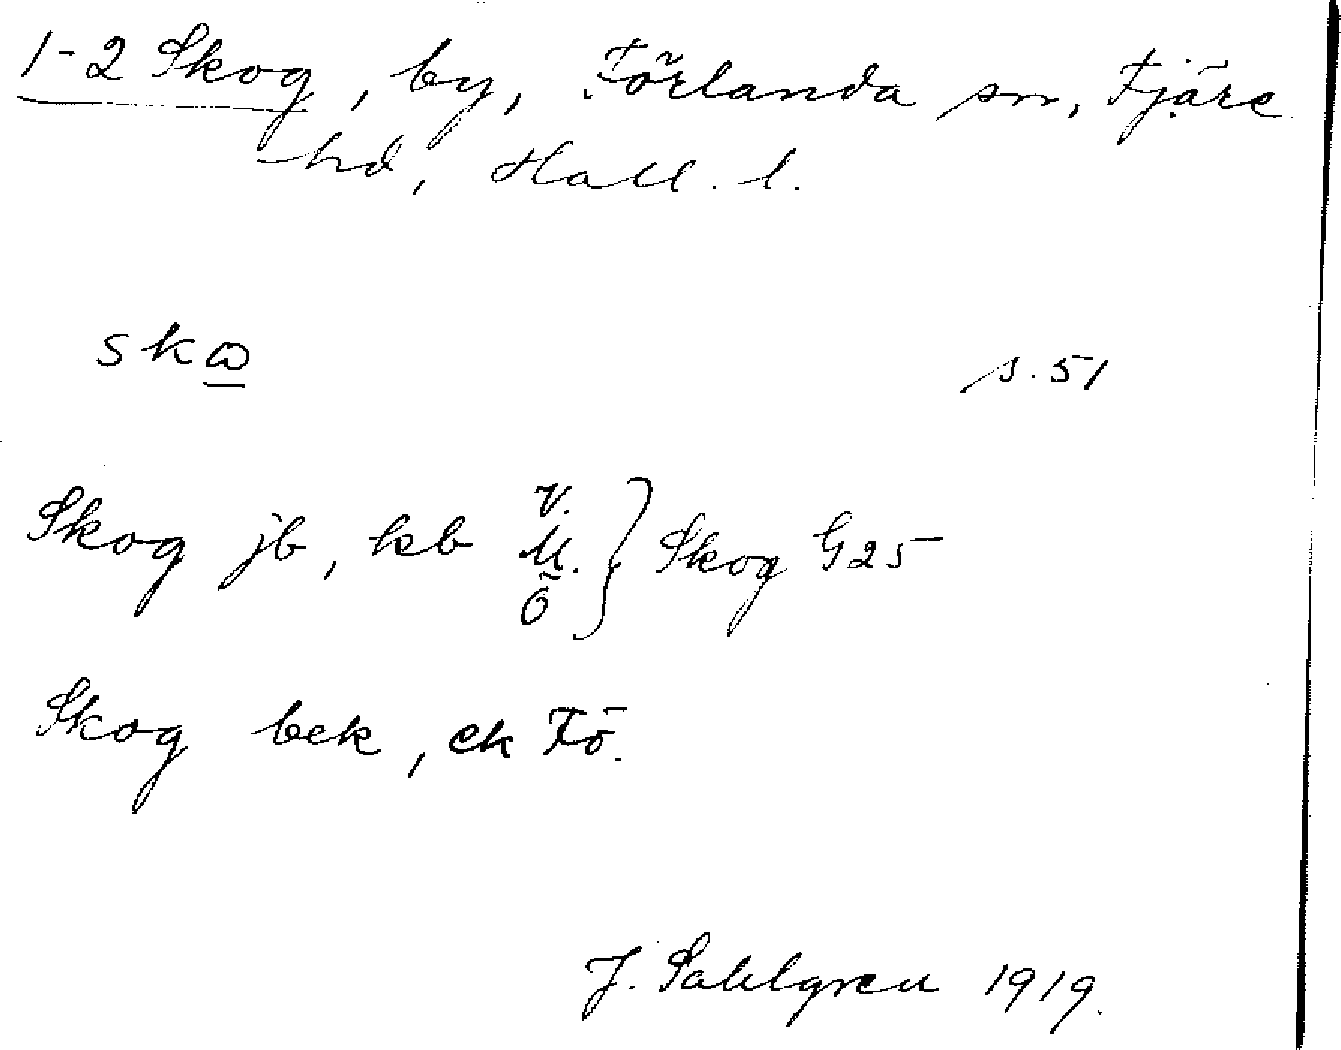 1-2 Skog, by, Förlanda sn, Fjäre
hd, Hall. l.
skꝏ s. 51
Skog jb, kb V. M. Ö } Skog G25
Skog bek, ek Fö.
J. Sahlgren 1919.